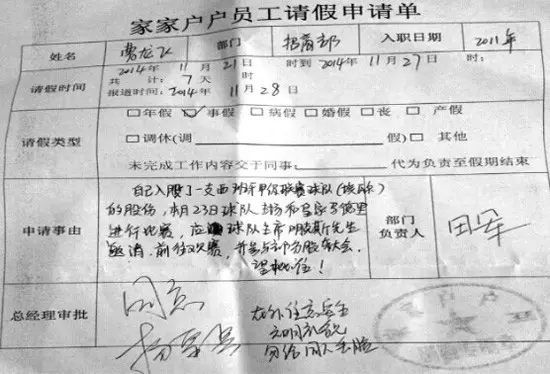 家家户户员工请假申请单
姓名 常龙飞 部门 招商部 入职日期 2011年
请假时间 2014年 11月 21日 时到 2014年 11月 27日 时:
共 计: 7 天 时
报道时间: 2014年 11月 28日
请假类型 □年假 ☑事假 □病假 □婚假 □丧 □产假
□调休(调 假) □ 其他
未完成工作内容交于同事: 代为负责至假期结束
申请事由 自己入股了一支西班牙甲级联赛球队(埃瓦)
的股份,本月23日球队主场和皇家马德里
进行比赛,应球队主席阿朗斯先生
邀请,前往观赛,并参与部分股东大会。
望批准!
部门
负责人 田军
总经理审批 同意
在外注意安全
文明礼貌
勿给国人丢脸